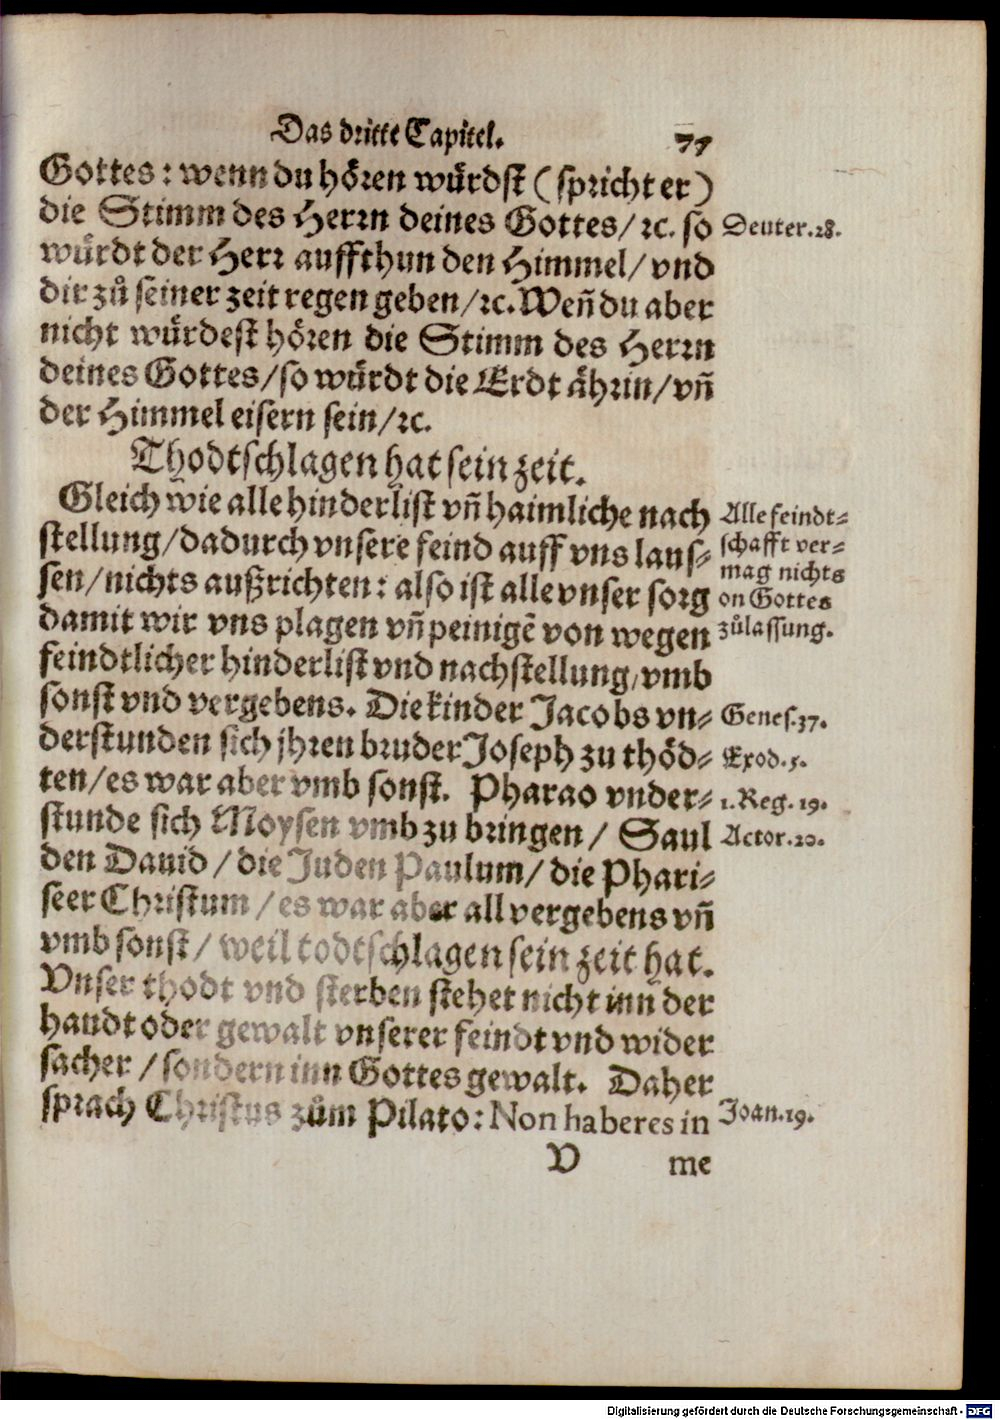 Das dritte Capitel. 77
Gottes: wenn du hören würdſt (ſpricht er)
die Stimm des Herrn deines Gottes/ ꝛc. ſo
Deuter. 28.
würdt der Herr auffthun den Himmel/ vnd
dir zů ſeiner zeit regen geben/ ꝛc. Weñ du aber
nicht würdeſt hören die Stimm des Herrn
deines Gottes/ ſo würdt die Erdt ährin/ vñ
der Himmel eiſern ſein/ ꝛc.
Thodtſchlagen hat ſein zeit.
Gleich wie alle hinderliſt vñ haimliche nach
ſtellung/ dadurch vnſere feind auff vns lauſ-
ſen/ nichts außrichten: alſo iſt alle vnſer ſorg
damit wir vns plagen vñ peinigẽ von wegen
Alle feindt-
ſchafft ver-
mag nichts
on Gottes
zůlaſſung.
feindtlicher hinderliſt vnd nachſtellung, vmb
ſonſt vnd vergebens. Die kinder Jacobs vn-
Geneſ. 37.
derſtunden ſich jhren bruder Joſeph zu thöd-
Exod. 5.
ten/ es war aber vmb ſonſt. Pharao vnder-
1. Reg. 19.
ſtunde ſich Moyſen vmb zu bringen/ Saul
Actor. 20.
den Dauid/ die Juden Paulum/ die Phari-
ſeer Chriſtum/ es war aber all vergebens vñ
vmb ſonſt/ weil todtſchlagen ſein zeit hat.
Vnſer thodt vnd ſterben ſtehet nicht inn der
handt oder gewalt vnſerer feindt vnd wider
ſacher/ ſondern inn Gottes gewalt. Daher
ſprach Chriſtus zům Pilato: Non haberes in
Joan. 19.
V me
Digitalisierung gefördert durch die Deutsche Forschungsgemeinschaft - DFG